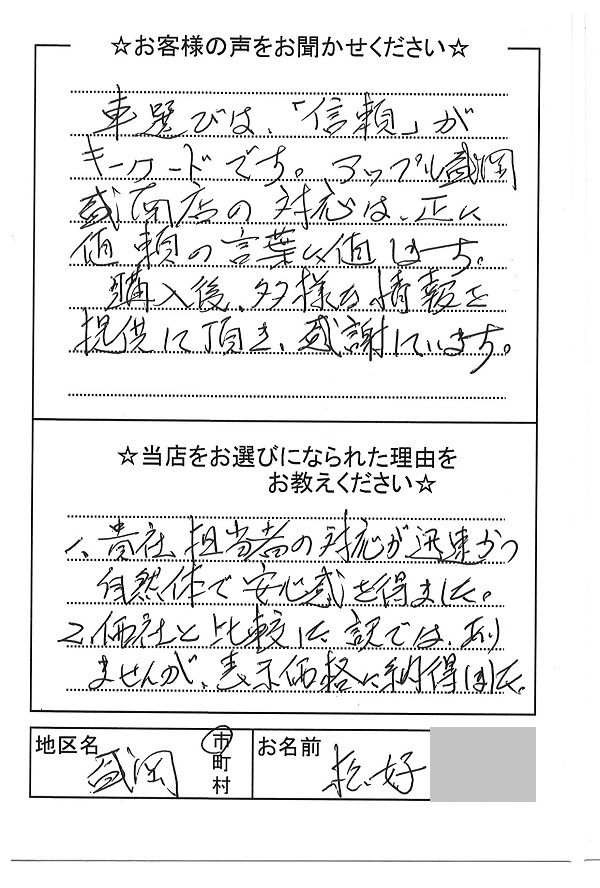 ☆お客様の声をお聞かせください☆
車選びは、「信頼」が
キーワードです。アップル盛岡
盛南店の対応は、正に
信頼の言葉に値します。
購入後、多様な情報を
提供して頂き、感謝しています。
☆当店をお選びになられた理由を
お教えください☆
1、貴社、担当者の対応が迅速かつ
自然体で安心感を得ました。
2、他社と比較した訳では、あり
ませんが、表示価格に納得しました。
地区名 盛岡 市町村 お名前 松好